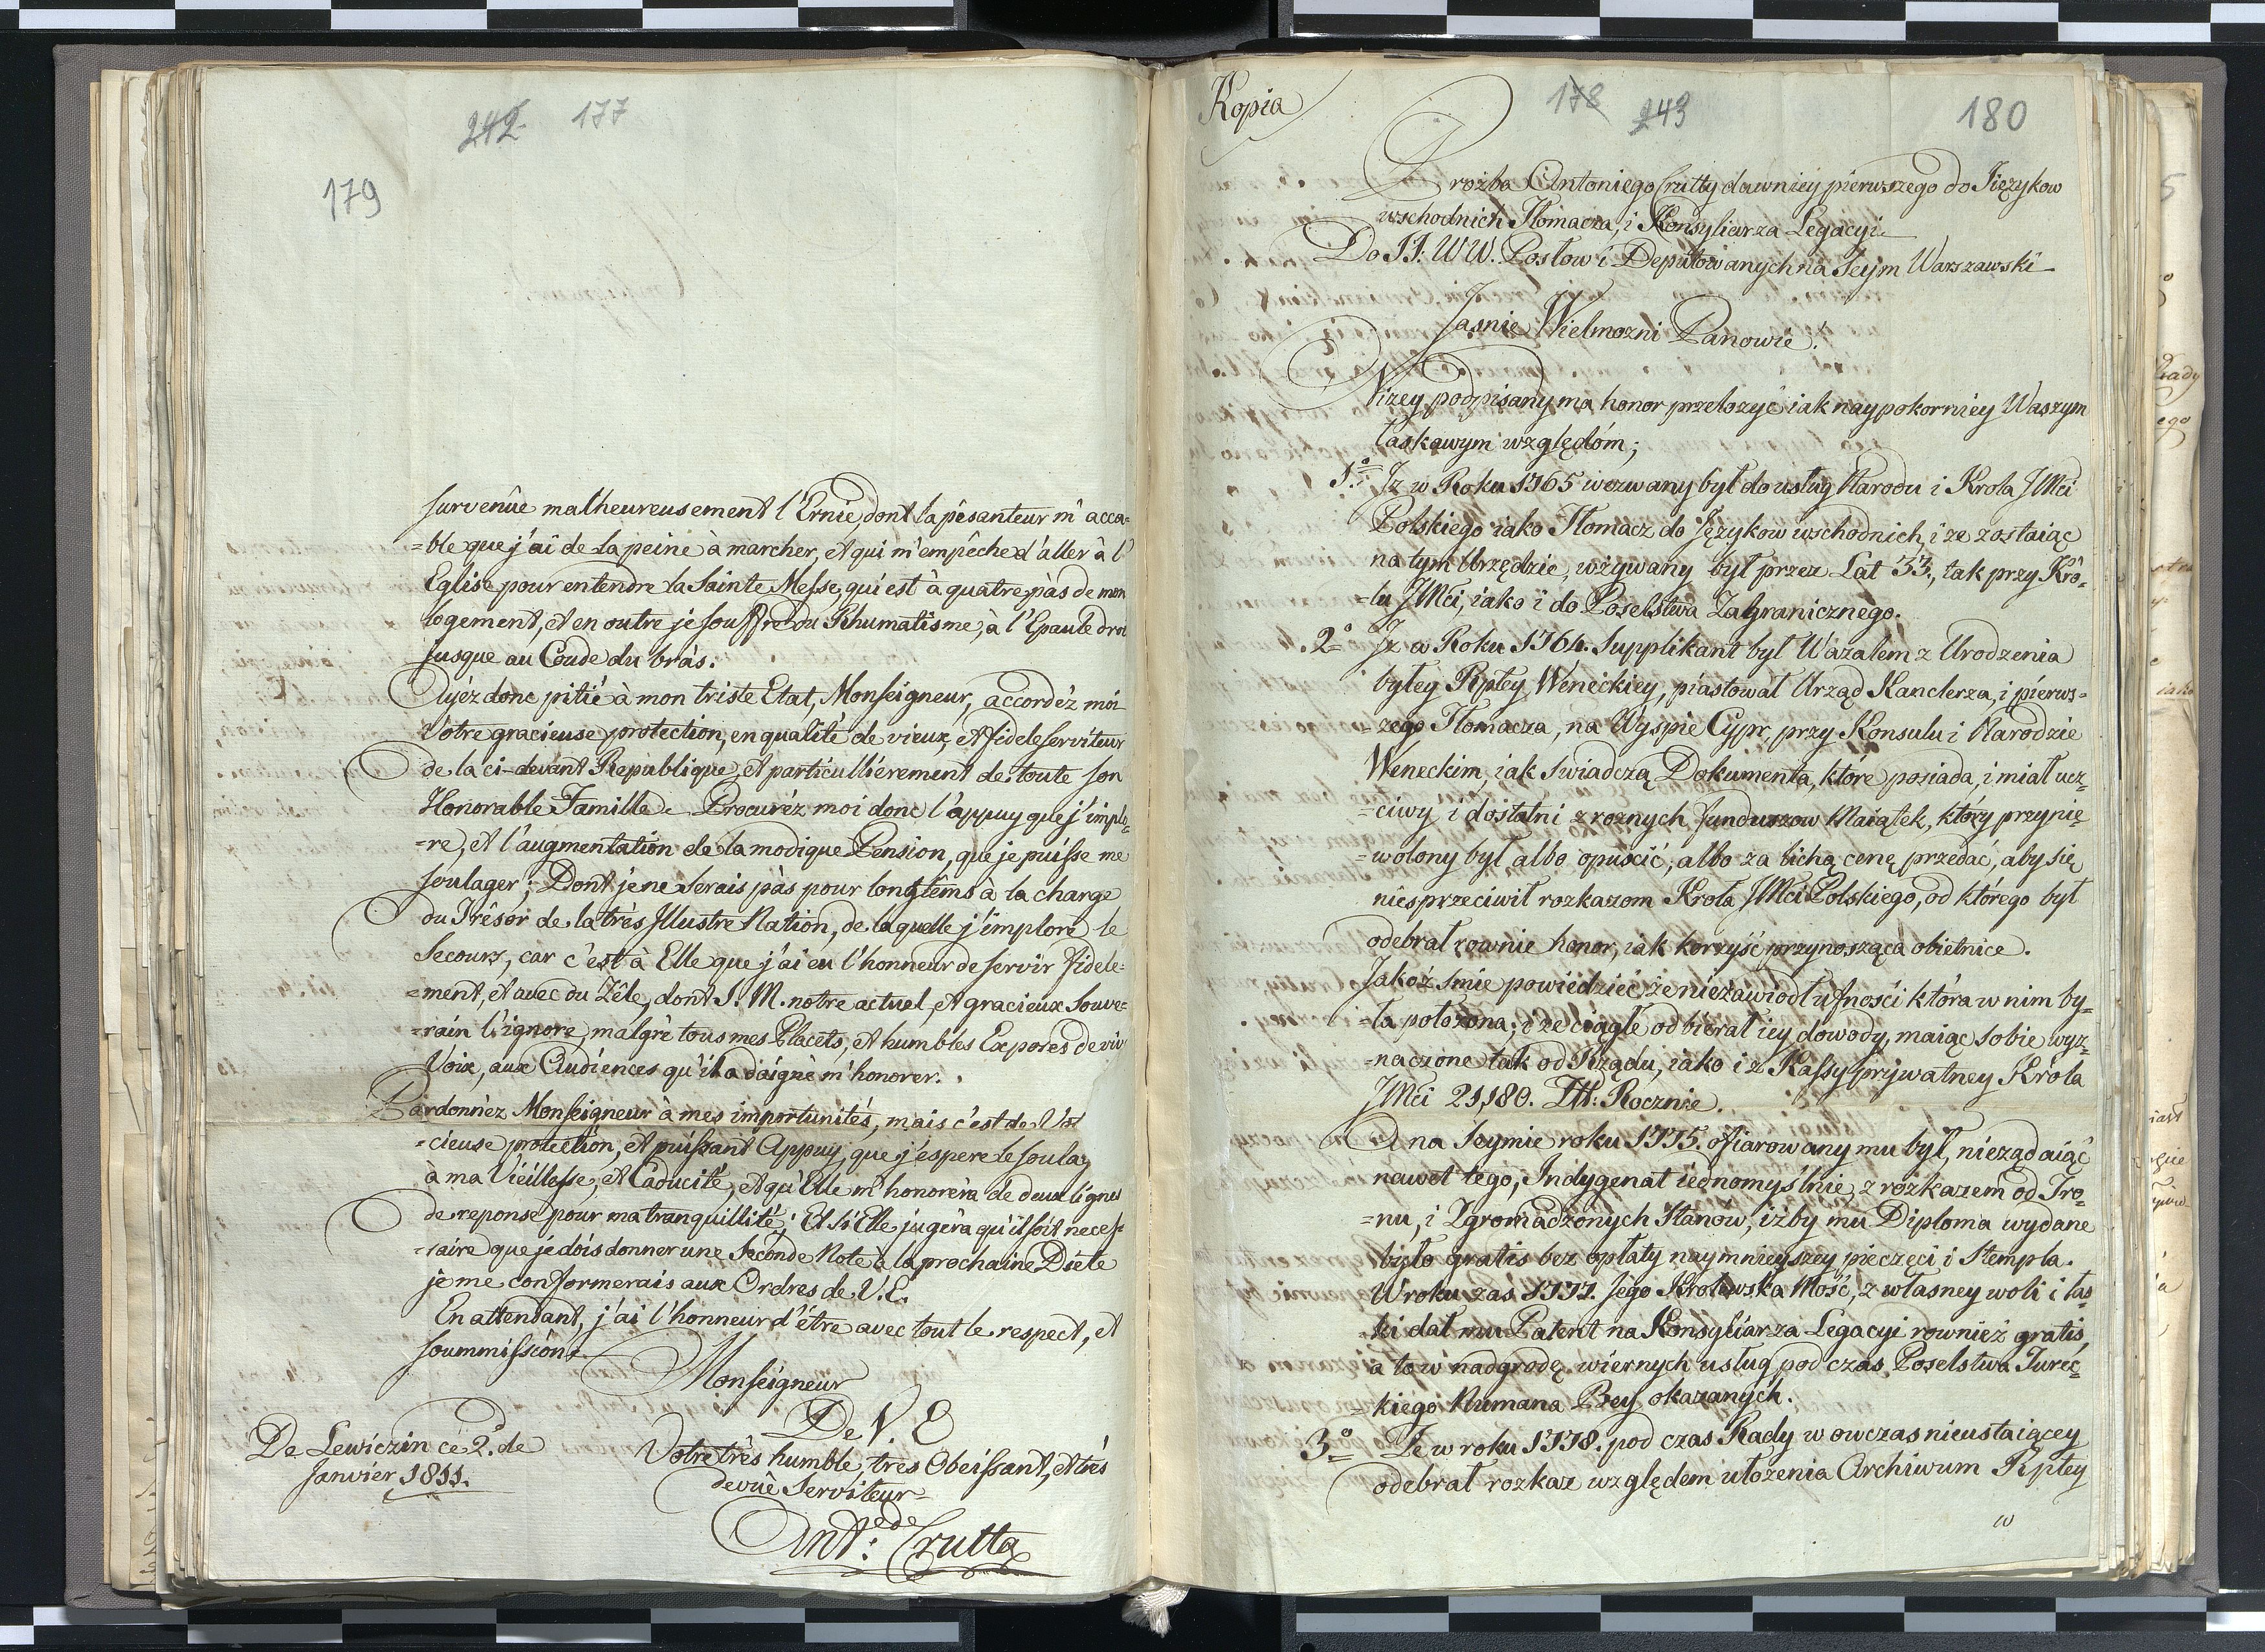 242 177
179
survenûe malheureusement l'Ernie, dont la pèsanteur m'acca=
=ble que j'ai de la peine à marcher, et qui m'empêche d'aller à l'
Eglise pour entendre la Sainte Messe, qui est à quatre pàs de mon
logement, et en outre je souffre du Rhumatisme, à l'Epaule droi
jusque au Coude du bràs.
Ayéz donc pitié à mon triste Etat, Monseigneur, accordéz moi
Votre gracieuse protection, en qualité de vieux, et fidele serviteur
de la ci-devant Republique, et particullièrement de toute son
Honorable Famille. Procuréz moi donc l'appuy que j'implo=
=re, et l'augmentation de la modique Pension, que je puisse me
soulager; Dont je ne serais pàs pour longtêms à la charge
du Trêsor de la très Illustre Nation, de laquelle j'implore le
Secours, car c'est à Elle que j'ai eu l'honneur de servir fidele=
=ment, et avec du Zêle, dont S. M. notre actuel, et gracieux Souve=
=rain l'ignore, malgrè tous mes Placets, et humbles Exposés de viv
Voix, aux Audiences qu'il a daignè m'honorer.
Pardonnèz Monseigneur à mes importunités, mais c'est de Vot
=cieuse protection, et puissant Appuy, que j'espere le soulag
à ma Vieillesse, et Caducité, et qu'Elle m'honorèra de deux lignes
de reponse pour ma tranquillité; Et si Elle jugèra qu'il soit neces=
=saire que je dois donner une Seconde Note à la prochaine Diéte
je me conformerais aux Ordres de V. E.
En attendant, j'ai l'honneur d'être avec tout le respect, et
soummission
Monseigneur
De V. E
De Lewiczin ce 2.º de
Janvier 1811.
Votre très humble, tres Obeissant, et très
devoûè Serviteur
Ant: de Crutta
Kopia
178 243
180
Prozba Antoniego Crutty dawniey pierwszego do Jięzykow
wschodnich Tłomacza, i Konsyliarza Legacyi
Do JJ. WW. Posłow i Deputowanych na Seym Warszawski
Jasnie Wielmozni Panowie!
Nizey podpisany ma honor przełozyć iak naypokorniey Waszym
łaskawym względóm;
1º Iz w Roku 1765 wezwany był do usług Narodu i Krola JMci
Polskiego iako Tłomacz do Języków wschodnich, i ze zostaiąc
na tym Urzędzie, używany był przez Lat 33., tak przy Kró=
=lu JMci, iako i do Poselstwa Zagranicznego.
2º Iz a Roku 1764. Supplikant był Wazalem z Urodzenia
byłey Rptey Weneckiey, piastował Urząd Kanclerza, i pierws=
=zego Tłomacza, na Wyspie Cypr, przy Konsulu i Narodzie
Weneckim, iak swiadczą Dokumenta, które posiada, i miał ucz=
=ciwy i dostatni z roznych funduszow Maiątek, który przynie=
=wolony był albo opuscić, albo za lichą cenę przedać, aby się
niesprzeciwił rozkazom Krola JMci Polskiego, od którego był
odebrał rownie honor, iak korzyść przynoszącą obietnice.
Jakóż smie powiedzieć, że niezawiodł ufności która w nim by=
=ła położona; i ze ciągle odbierał iey dowody, maiąc sobie wyz=
=naczone tak od Rządu, iako i z Kassy prywatney Króla
JMci 21,180. Złł: Rocznie.
A na Seymie roku 1775. ofiarowany mu był, nieządaiąc
nawet tego, Indygenat iednomyślnie, z rozkazem od Tro=
=nu, i Zgromadzonych Stanow, iżby mu Diploma wydane
było gratis bez opłaty naymnieyszey pieczęci, i Stempla.
W roku zas 1777. Jego Krolewska Mość, z własney woli i łas=
=ki dał mu Patent na Konsyliarza Legacyi rownież gratis,
a to w nadgrodę wiernych usług pod czas Poselstwa Turec=
=kiego Numana Bey okazanych.
3º Ze w roku 1778. pod czas Rady w owczas nieustaiącey
odebrał rozkaz względem ułozenia Archiwum Rptey
w